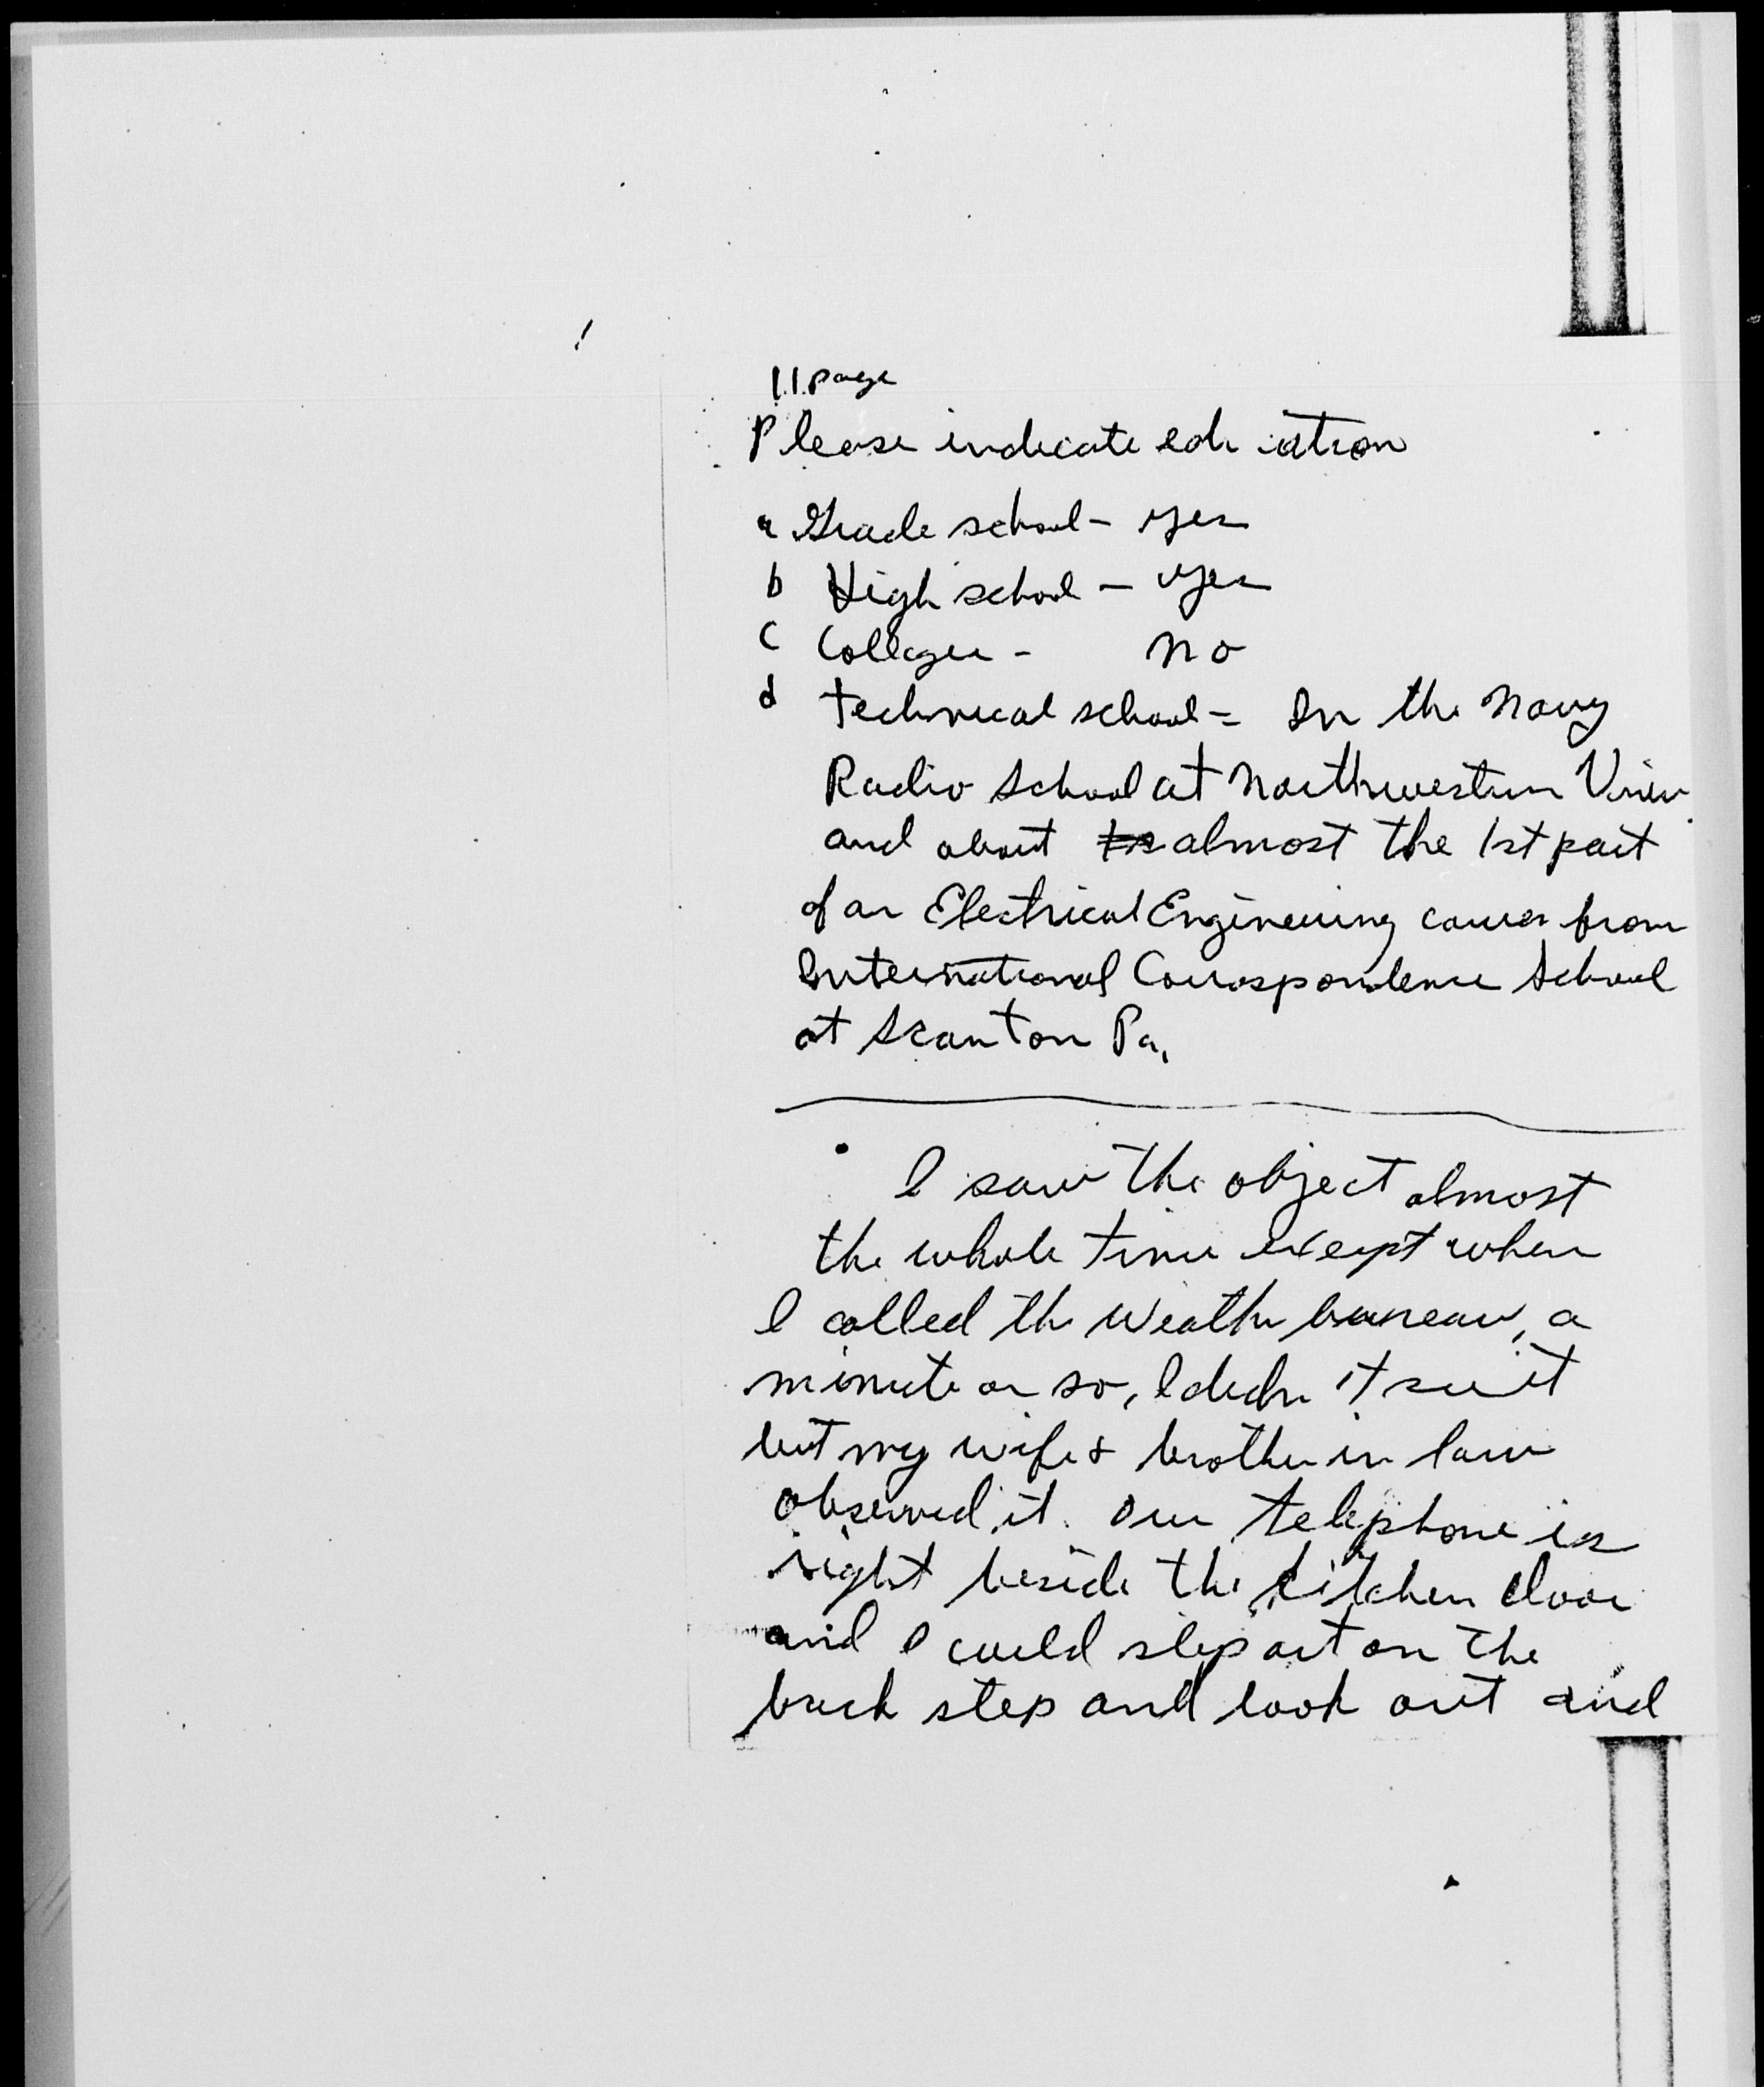 11 page
Please indicate edu ation
a Grade school - yes
b High school - yes
c College - no
d Technical school - In the Navy
Radio School at Northwestern Univ
and about almost the 1st part
of an Electrical Engineering course from
International Correspondence School
at Scanton Pa.
I saw the object almost
the whole time except when
I called the Weather bureau, a
minute or so, I didn't see it
but my wife & brother in law
observed it. Our telephone is
right beside the kitchen door
and I could step out on the
back step and look out and